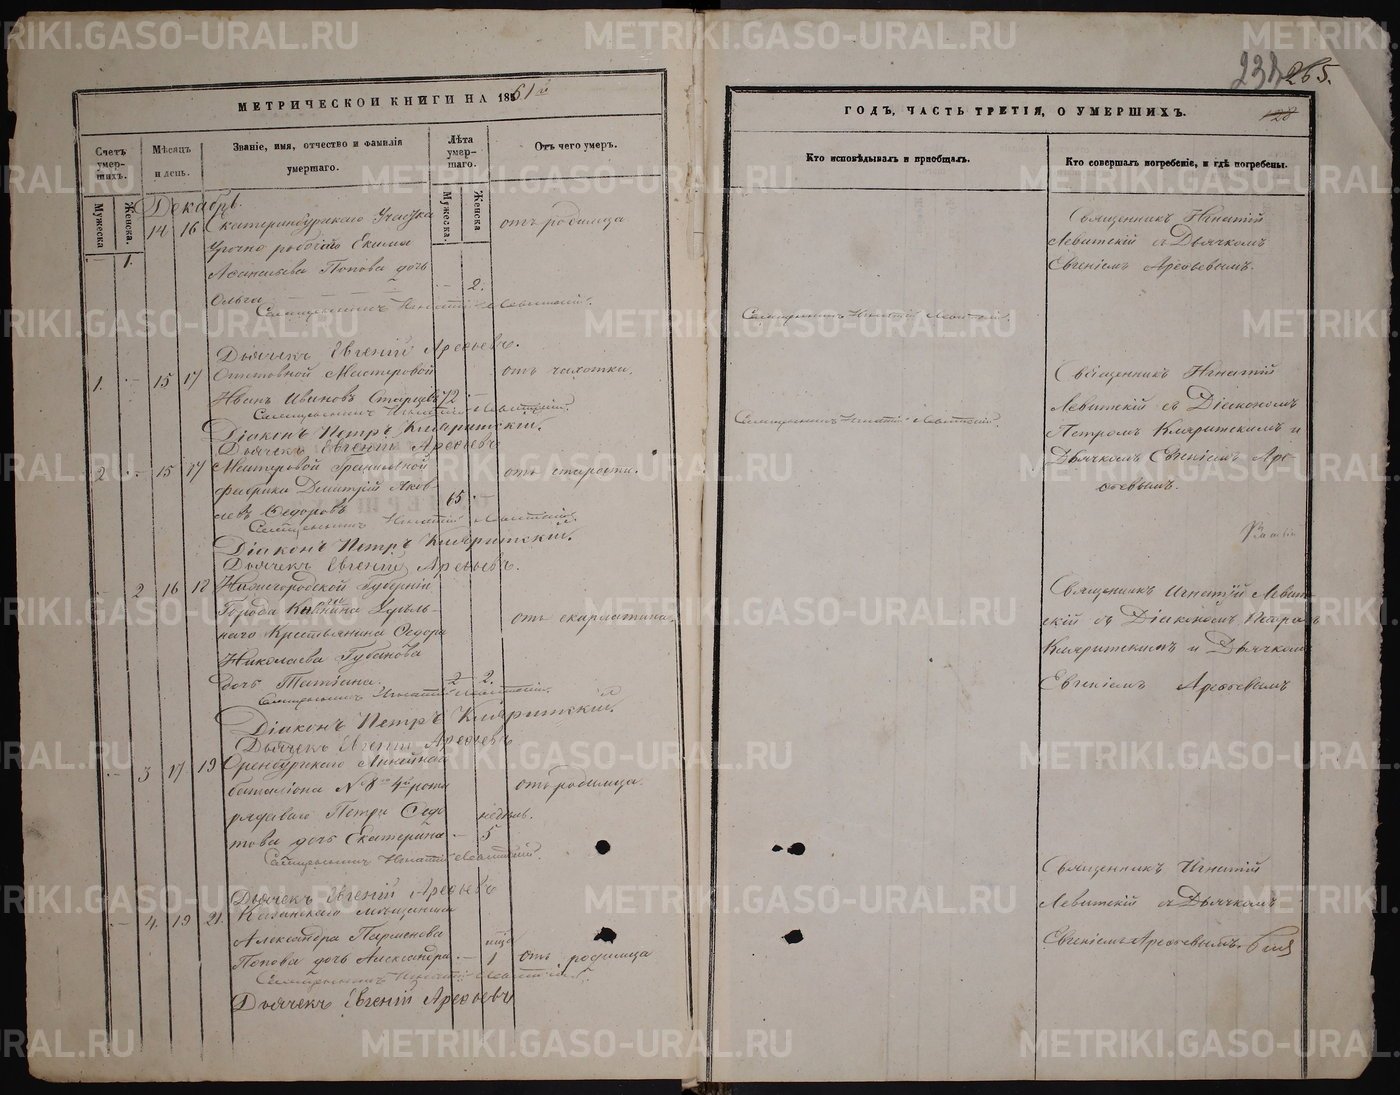 МЕТРИЧЕСКОЙ КНИГИ НА 1861й
Счетъ умер-шихъ.
Мѣсяцъ и день.
Званіе, имя, отчество и фамилія умершаго.
Лѣта умер-шаго.
Отъ чего умеръ.
Мужеска
Женска.
Мужеска.
Женска
Декабрь.
1. 14 16 Екатеринбургскаго Участка
отъ родимца
Урочно рабочаго Екима
Афанасьева Попова дочь
2.
Ольга
Священникъ Игнатій Левитскій.
Дьячекъ Евгеній Арефьевъ.
1. 15 17 Отставной Мастеровой
отъ чахотки.
Иванъ Ивановъ Старцевъ 72
Священникъ Игнатій Левитскій.
Діаконъ Петръ
Дьячекъ Евгеній Арефьевъ
2 15 17 Мастеровой Гранильной
отъ старости.
фабрики Дмитрій Яков-
левъ Федоровъ
65
Священникъ Игнатій Левитскій
Діаконъ Петръ
Дьячекъ Евгеній Арефьевъ.
2 16 18 Нижегородской Губерніи
Города
Удѣль-
наго Крестьянина Федора
отъ скарлатины
Николаева Губанова
дочь Татіана. 2.
Священникъ Игнатій Левитскій.
Діаконъ Петръ
Дьячекъ Евгеній Арефьевъ
3 17 19 Оренбургскаго Линейнаго
баталіона № 8го 4й роты
отъ родимца.
рядоваго Петра Федо-
недѣль.
това дочь Екатерина 5
Священникъ Игнатій Левитскій.
Дьячекъ Евгеній Арефьевъ
4. 19 21. Казанскаго мѣщанина
Александра Парменова
мѣца
Попова дочь Александра 1 отъ родимца
Священникъ Игнатій Левитскій
Дьячекъ Евгеній Арефьевъ
265.
128
ГОДЪ, ЧАСТЬ ТРЕТІЯ, О УМЕРШИХЪ.
Кто исповѣдывалъ и пріобщалъ.
Кто совершалъ погребеніе, и гдѣ погребены.
Священникъ Игнатій
Левитскій съ Дьячкомъ
Евгеніемъ Арефьевымъ.
Священникъ Игнатій Левитскій.
Священникъ Игнатій
Левитскій съ Діакономъ
Священникъ Игнатій Левитскій.
Петромъ и
Дьячкомъ Евгеніемъ Аре-
фьевымъ.
Священникъ Игнатій Левит-
скій съ Діакономъ Петромъ
и Дьячкомъ
Евгеніемъ Арефьевымъ
Священникъ Игнатій
Левитскій съ Дьячкомъ
Евгеніемъ Арефьевымъ.
METRIKI.GASO-URAL.RU